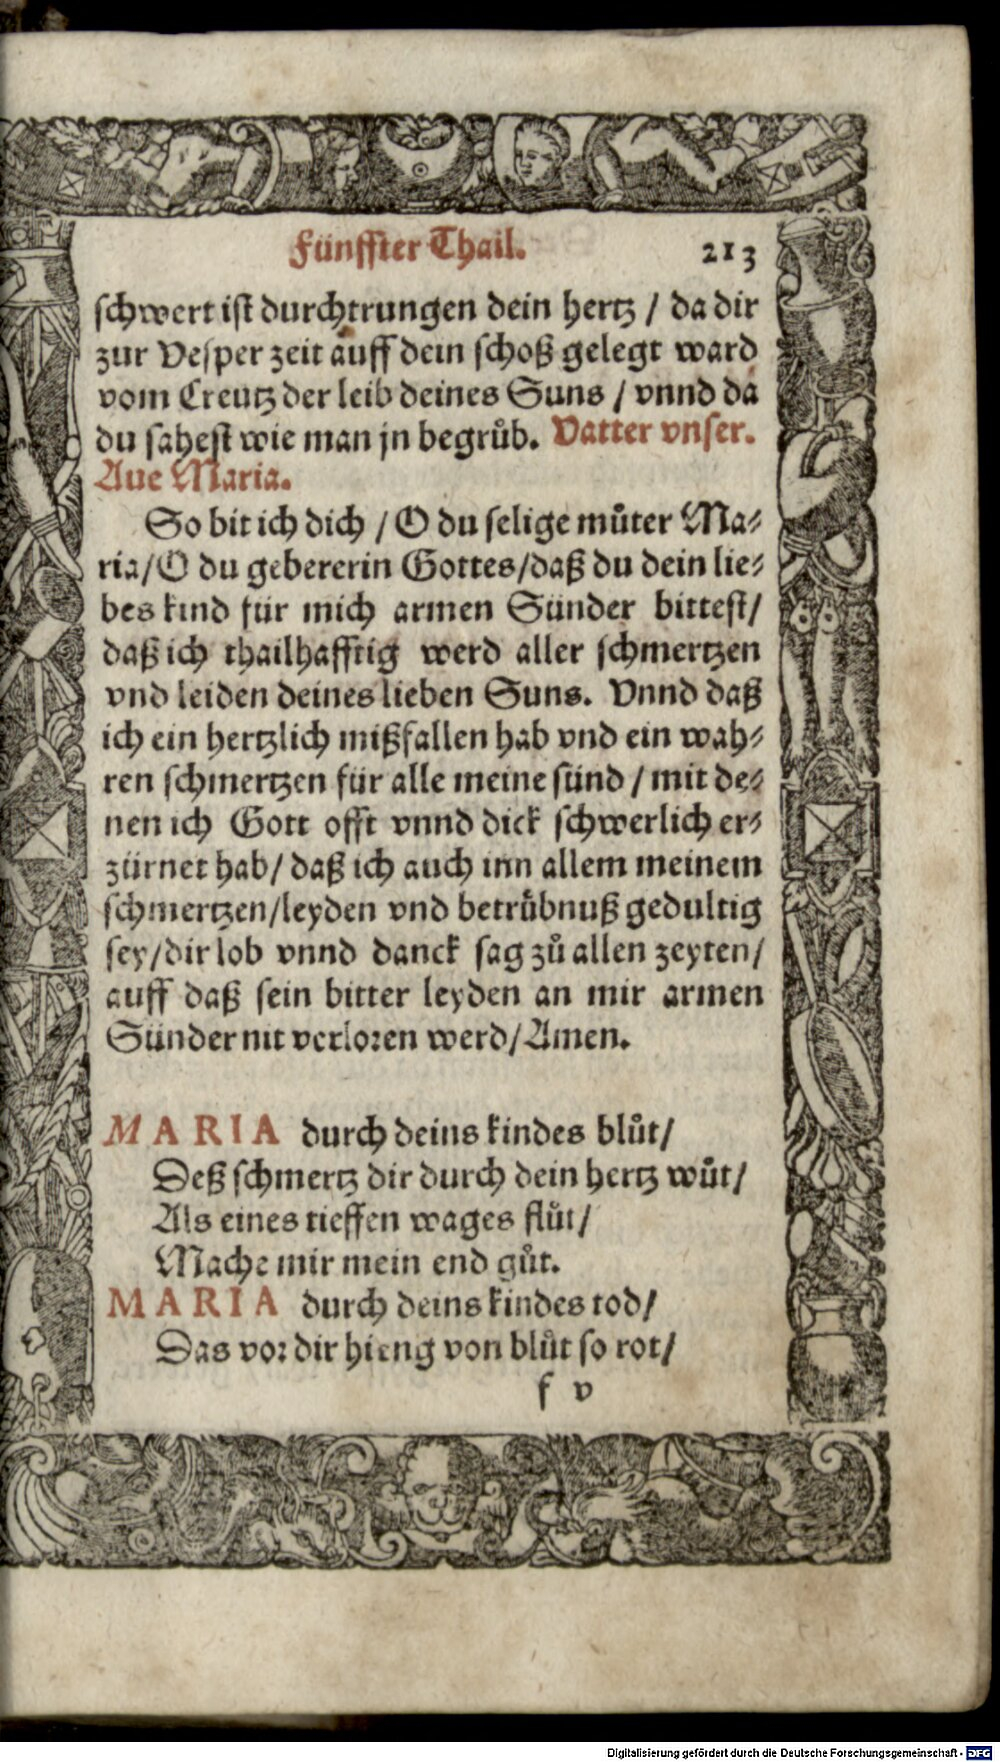 Fünffter Thail. 213
schwert ist durchtrungen dein hertz / da dir
zur Vesper zeit auff dein schoß gelegt ward
vom Creutz der leib deines Suns / vnnd da
du sahest wie man jn begrůb. Vatter vnser.
Aue Maria.
So bit ich dich / O du selige můter Ma⸗
ria/O du gebererin Gottes/daß du dein lie⸗
bes kind für mich armen Sünder bittest/
daß ich thailhafftig werd aller schmertzen
vnd leiden deines lieben Suns. Vnnd daß
ich ein hertzlich mißfallen hab vnd ein wah⸗
ren schmertzen für alle meine sünd / mit de⸗
nen ich Gott offt vnnd dick schwerlich er⸗
zürnet hab/ daß ich auch inn allem meinem
schmertzen/leyden vnd betrůbnuß gedultig
sey/dir lob vnnd danck sag zů allen zeyten/
auff daß sein bitter leyden an mir armen
Sünder nit verloren werd/Amen.
MARIA durch deins kindes blůt/
Deß schmertz dir durch dein hertz wůt/
Als eines tieffen wages flůt/
Mache mir mein end gůt.
MARIA durch deins kindes tod/
Das vor dir hieng von blůt so rot/
f v
Digitalisierung gefördert durch die Deutsche Forschungsgemeinschaft - DFG